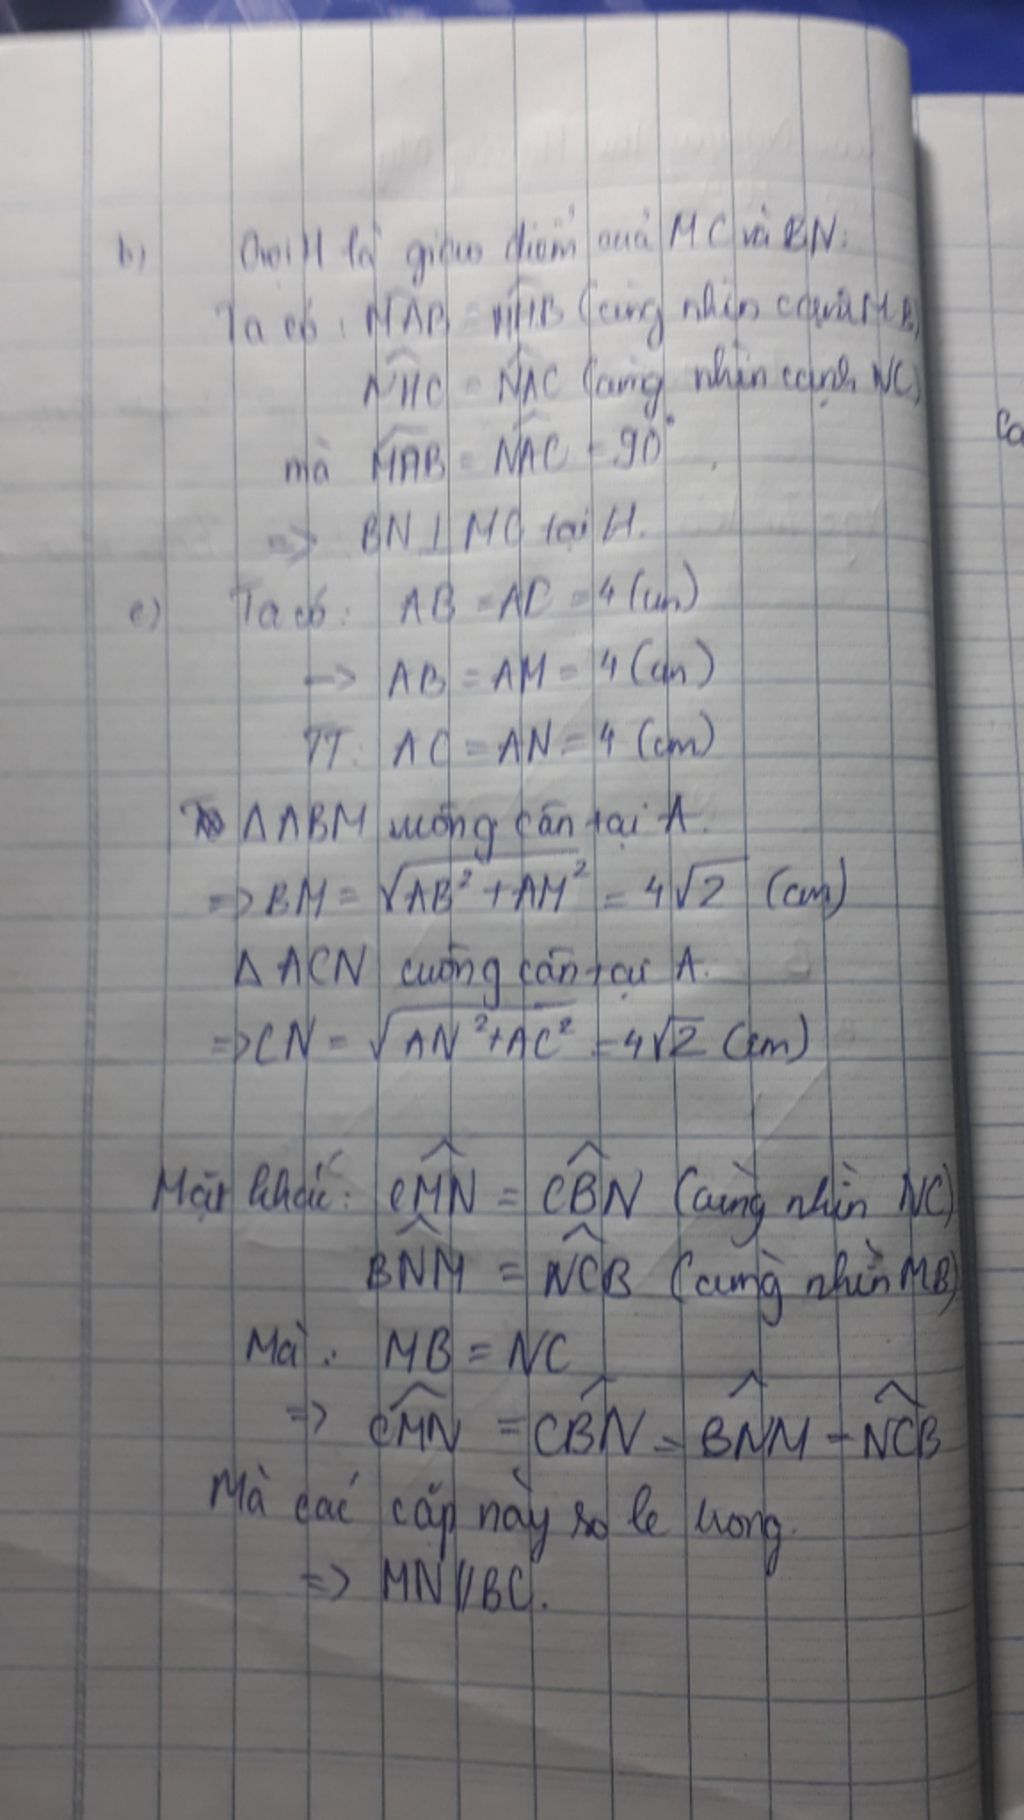 b) Gọi H là giao điểm của MC và BN.
Ta có: MAB = MHB (cùng nhìn cạnh MB)
NHC = NAC (cùng nhìn cạnh NC)
mà MAB = NAC = 90°
=> BN ⊥ MC tại H.
c) Ta có: AB = AC = 4 (cm)
-> AB = AM = 4 (cm)
TT: AC = AN = 4 (cm)
Δ ABM vuông cân tại A.
=> BM = √(AB² + AM²) = 4√2 (cm)
Δ ACN vuông cân tại A.
=> CN = √(AN² + AC²) = 4√2 (cm)
Mặt khác: CMN = CBN (cùng nhìn NC)
BNM = NCB (cùng nhìn MB)
Mà: MB = NC
=> CMN = CBN = BNM = NCB
Mà các cặp này so le trong.
=> MN // BC.